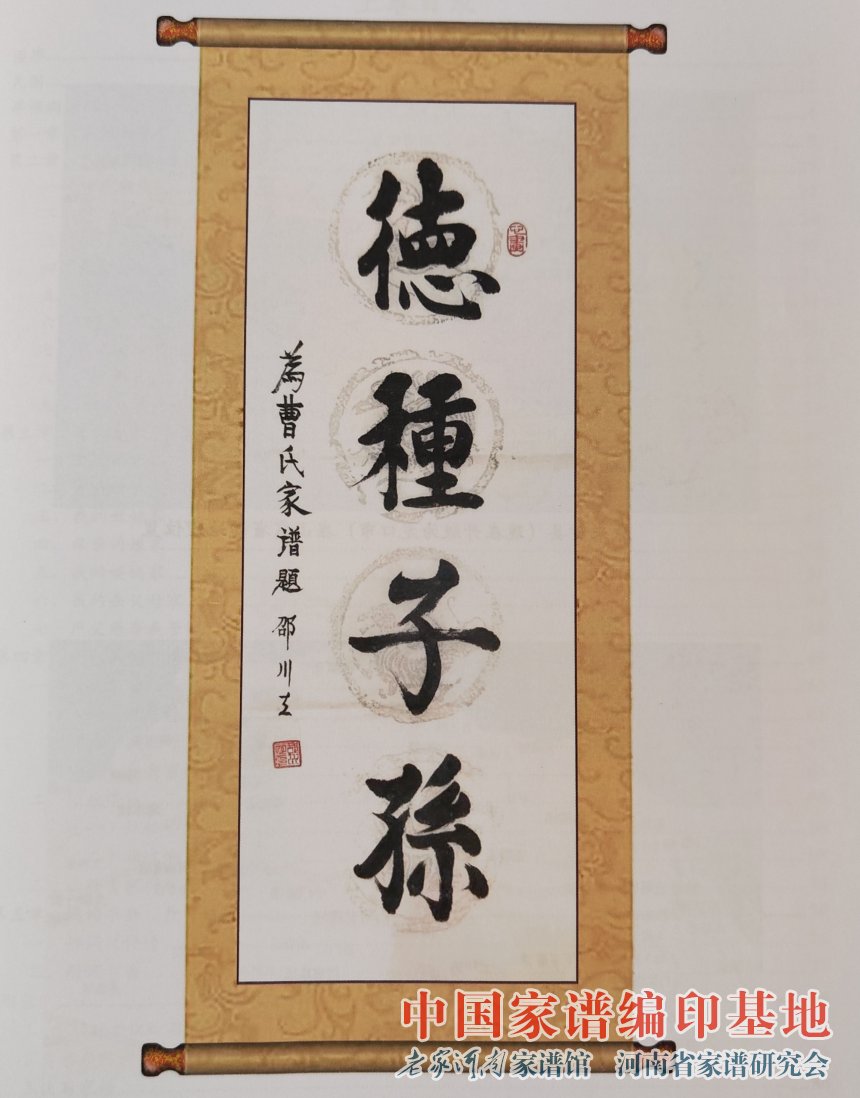 德種子孫
為曹氏家谱題 邵川立
中国家谱编印基地
老家河南家谱馆 河南省家谱研究会